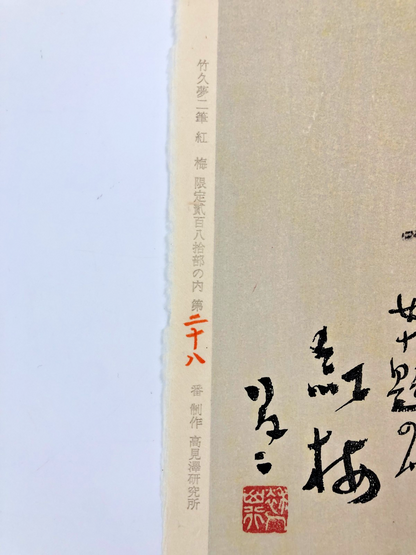 竹久夢二筆 紅 梅 限定貳百八拾部の内 第二十八番 制作 高見澤研究所
女十題の内
紅梅
夢二